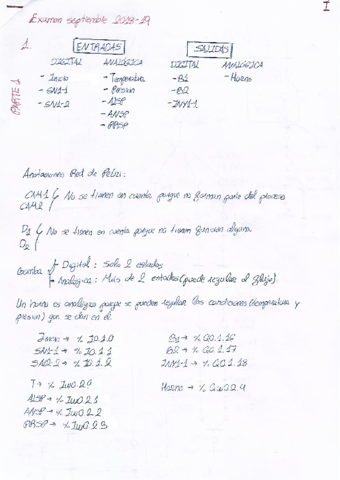 Examen septiembre 2018-19
I
PARTE 1
1.
ENTRADAS
SALIDAS
DIGITAL ANALÓGICA DIGITAL ANALÓGICA
- Inicio - Temperatura - B1 - Horno
- SN1-1 - Presion - B2
- SN1-2 - A1SP - INY1-1
- ANSP
- PRSP
Anotaciones Red de Petri:
CAM1
CAM2 No se tienen en cuenta porque no forman parte del proceso
D1
D2 No se tienen en cuenta porque no tienen función alguna.
Bomba Digital: Solo 2 estados
Analógica: Más de 2 estados (puede regular el flujo).
Un horno es analógico porque se pueden regular las condiciones (temperatura y
presion) que se dan en él.
Inicio → % I0.1.0 B1 → % Q0.1.16
SN1-1 → % I0.1.1 B2 → % Q0.1.17
SN1-2 → % I0.1.2 INY1-1 → % Q0.1.18
T → % IW0.2.0 Horno → % QW0.2.4
A1SP → % IW0.2.1
ANSP → % IW0.2.2
PRSP → % IW0.2.3